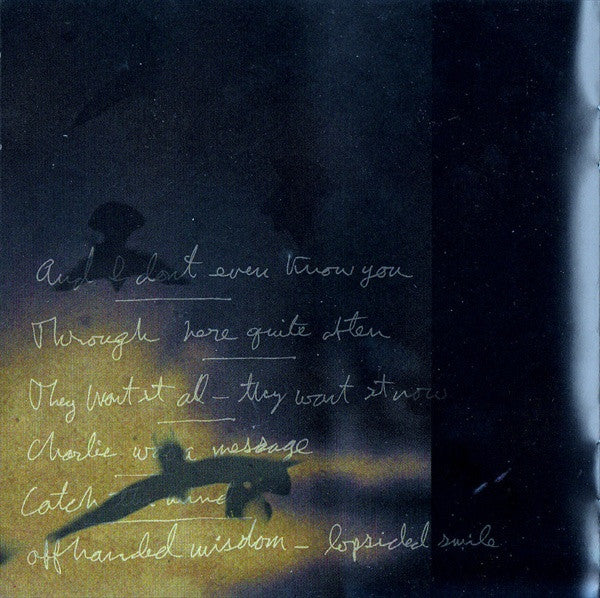 And I don't even know you
Through here quite often
They want it al — they want it now
Charlie was a message
Catch wind
off handed wisdom — lopsided smile